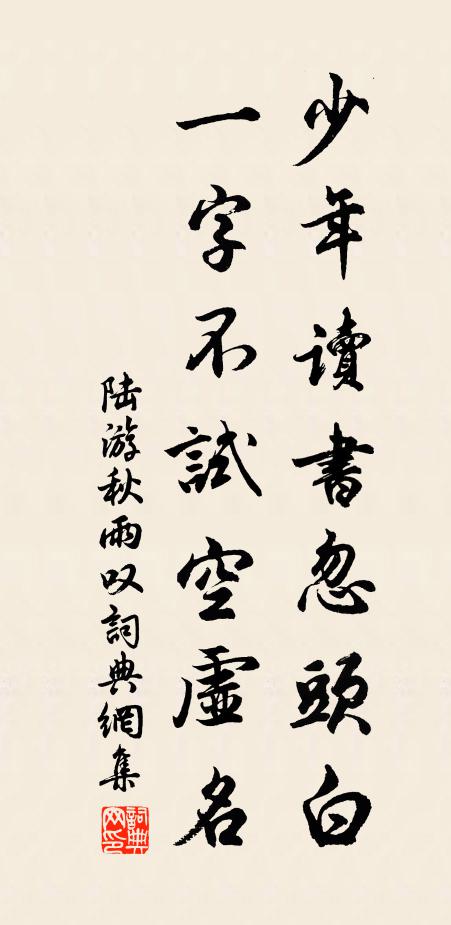 少年讀書忽頭白
一字不試空虛名
陆游秋雨叹詞典網集
詞典網印